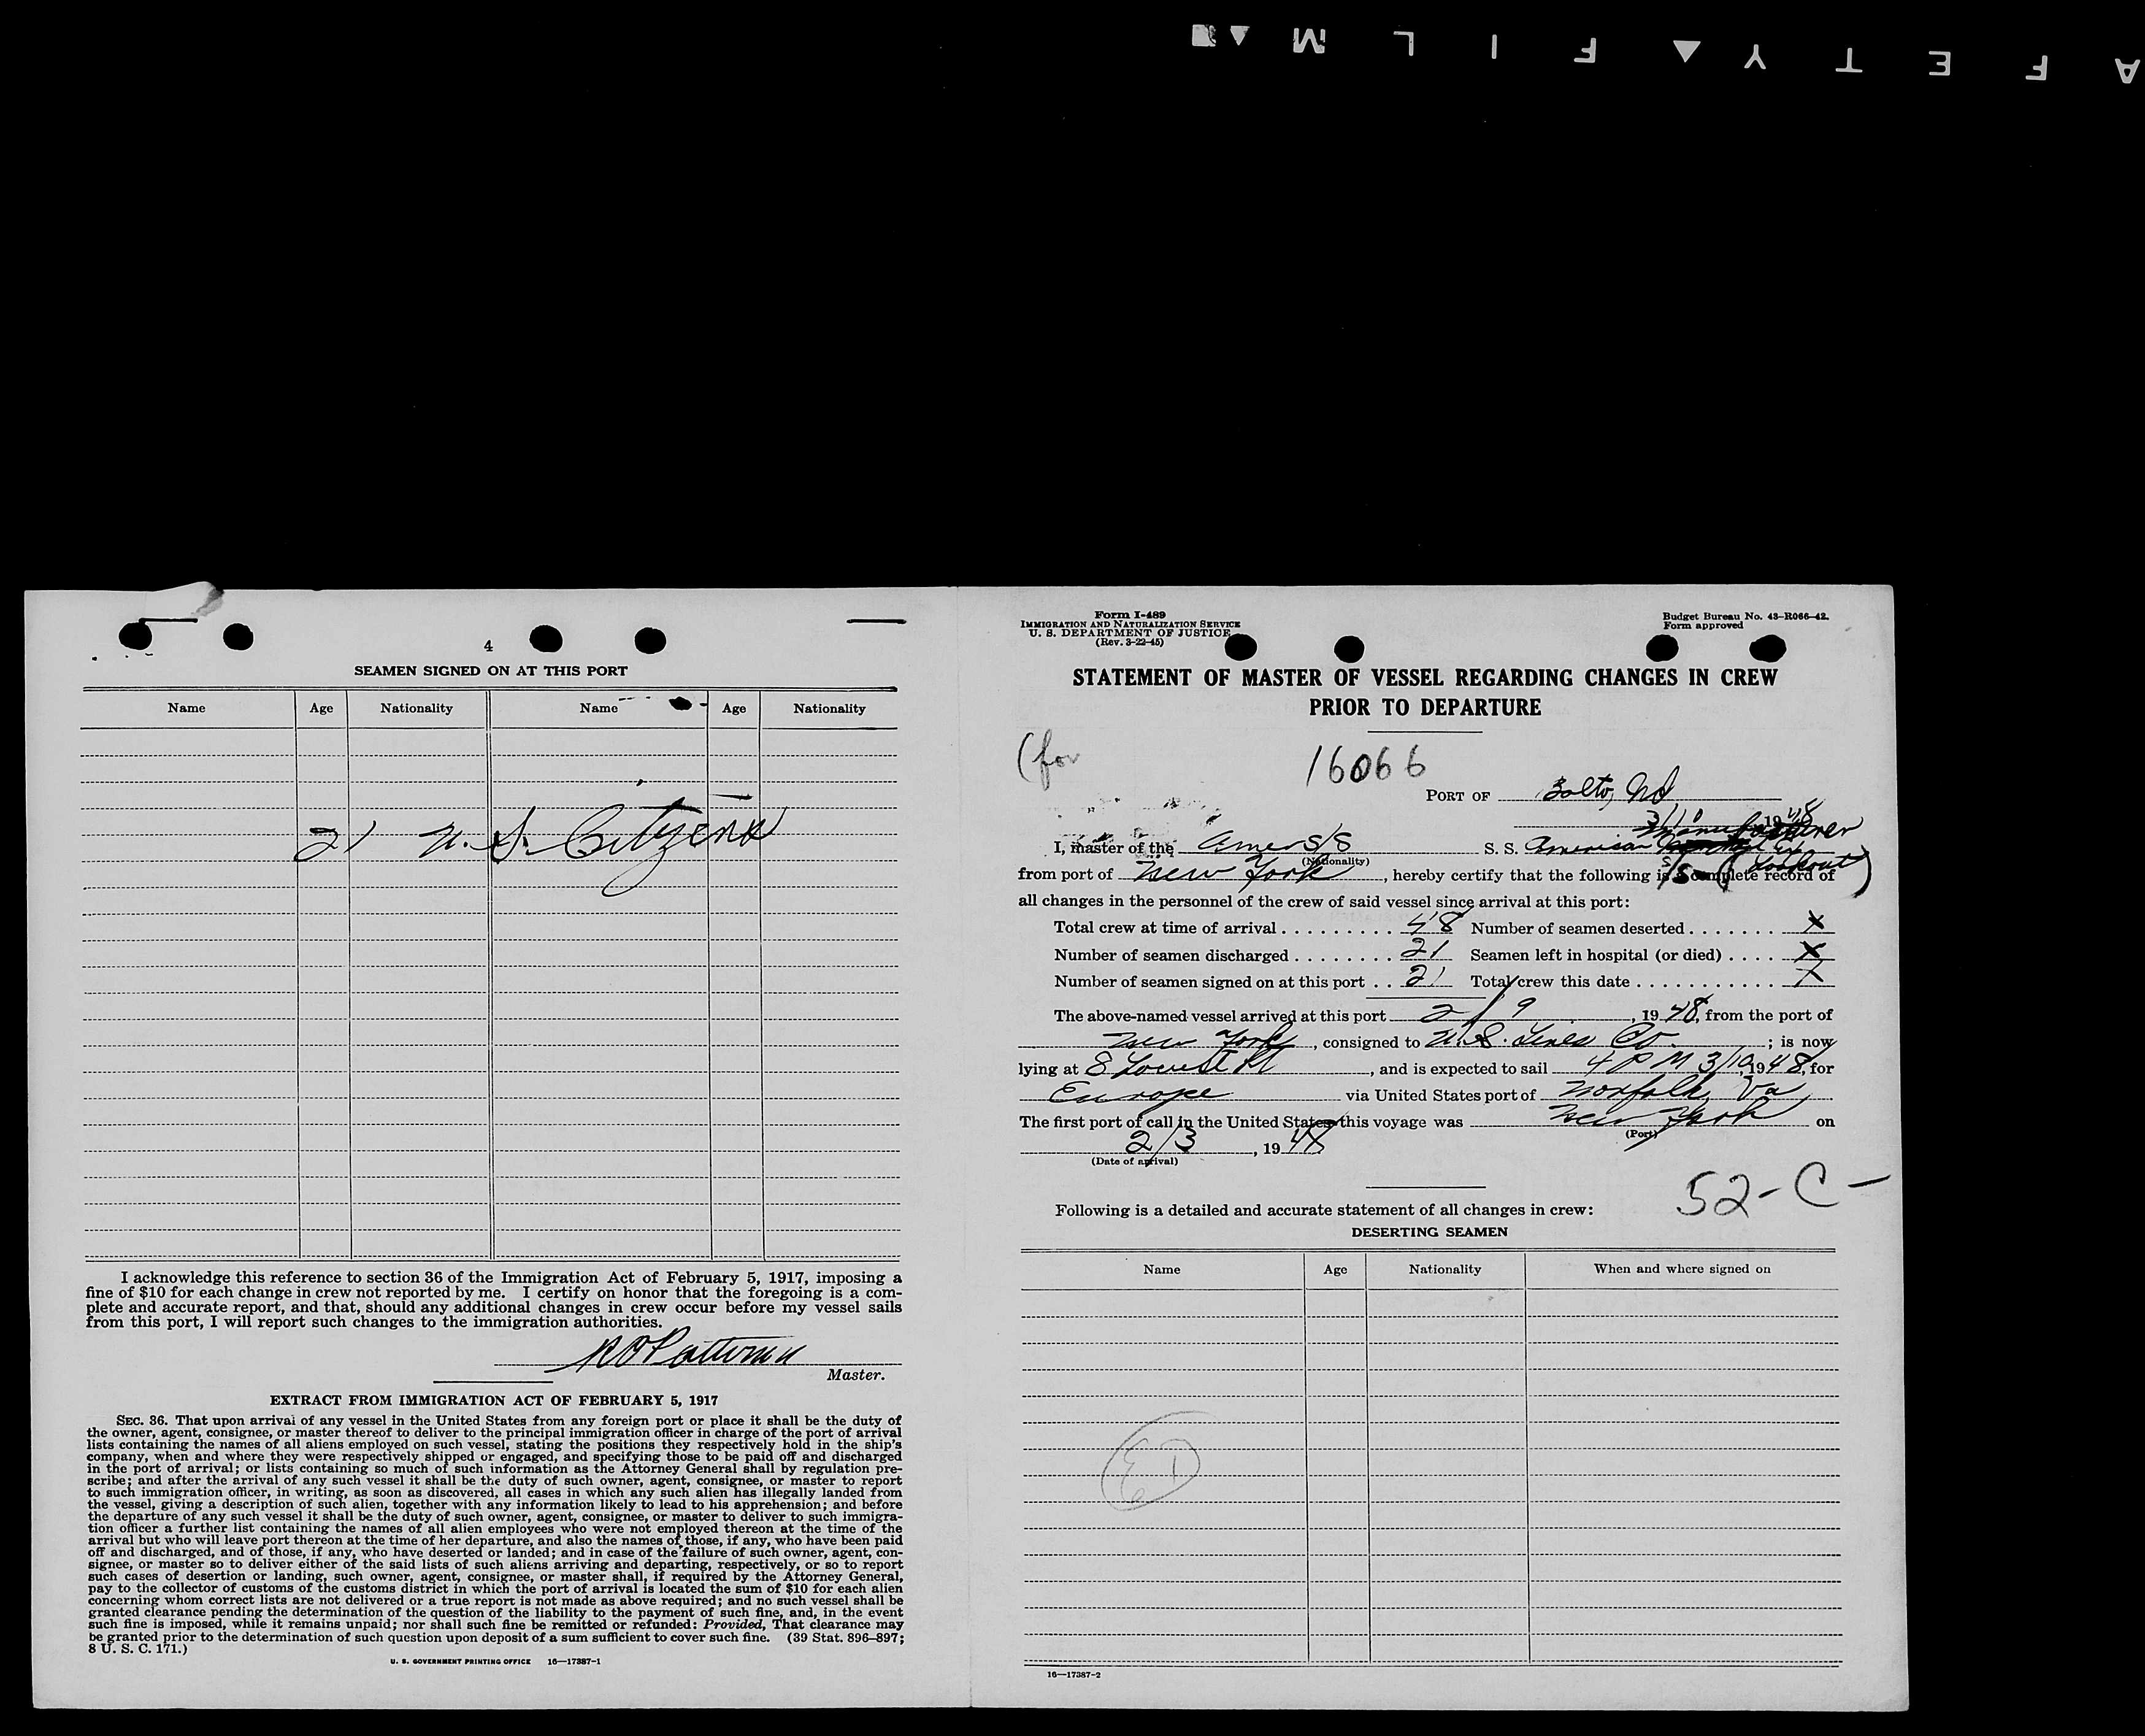 SAFETY FILM
4
SEAMEN SIGNED ON AT THIS PORT
Name Age Nationality Name Age Nationality
21 U. S. Citizens
I acknowledge this reference to section 36 of the Immigration Act of February 5, 1917, imposing a
fine of $10 for each change in crew not reported by me. I certify on honor that the foregoing is a com-
plete and accurate report, and that, should any additional changes in crew occur before my vessel sails
from this port, I will report such changes to the immigration authorities.
Master.
EXTRACT FROM IMMIGRATION ACT OF FEBRUARY 5, 1917
SEC. 36. That upon arrival of any vessel in the United States from any foreign port or place it shall be the duty of
the owner, agent, consignee, or master thereof to deliver to the principal immigration officer in charge of the port of arrival
lists containing the names of all aliens employed on such vessel, stating the positions they respectively hold in the ship's
company, when and where they were respectively shipped or engaged, and specifying those to be paid off and discharged
in the port of arrival; or lists containing so much of such information as the Attorney General shall by regulation pre-
scribe; and after the arrival of any such vessel it shall be the duty of such owner, agent, consignee, or master to report
to such immigration officer, in writing, as soon as discovered, all cases in which any such alien has illegally landed from
the vessel, giving a description of such alien, together with any information likely to lead to his apprehension; and before
the departure of any such vessel it shall be the duty of such owner, agent, consignee, or master to deliver to such immigra-
tion officer a further list containing the names of all alien employees who were not employed thereon at the time of the
arrival but who will leave port thereon at the time of her departure, and also the names of those, if any, who have been paid
off and discharged, and of those, if any, who have deserted or landed; and in case of the failure of such owner, agent, con-
signee, or master so to deliver either of the said lists of such aliens arriving and departing, respectively, or so to report
such cases of desertion or landing, such owner, agent, consignee, or master shall, if required by the Attorney General,
pay to the collector of customs of the customs district in which the port of arrival is located the sum of $10 for each alien
concerning whom correct lists are not delivered or a true report is not made as above required; and no such vessel shall be
granted clearance pending the determination of the question of the liability to the payment of such fine, and, in the event
such fine is imposed, while it remains unpaid; nor shall such fine be remitted or refunded: Provided, That clearance may
be granted prior to the determination of such question upon deposit of a sum sufficient to cover such fine. (39 Stat. 896–897;
8 U. S. C. 171.)
U. S. GOVERNMENT PRINTING OFFICE 16—17387-1
Form I-489
IMMIGRATION AND NATURALIZATION SERVICE
U. S. DEPARTMENT OF JUSTICE
(Rev. 3-22-45)
Budget Bureau No. 43-R066-42.
Form approved
STATEMENT OF MASTER OF VESSEL REGARDING CHANGES IN CREW
PRIOR TO DEPARTURE
(for 16066
PORT OF Balto, Md
3/10 1948
I, master of the Amer S/S S. S. American Manufacturer
(Nationality)
from port of New York, hereby certify that the following is a complete record of
all changes in the personnel of the crew of said vessel since arrival at this port:
Total crew at time of arrival 48 Number of seamen deserted X
Number of seamen discharged 21 Seamen left in hospital (or died) X
Number of seamen signed on at this port 21 Total crew this date X
The above-named vessel arrived at this port 2/9, 1948, from the port of
New York, consigned to U.S. Lines Co.; is now
lying at 8 Locust Pt, and is expected to sail 4 PM 3/10, 1948, for
Europe via United States port of Norfolk, Va
The first port of call in the United States this voyage was New York on
(Port)
2/3, 1948
(Date of arrival)
52-C-
Following is a detailed and accurate statement of all changes in crew:
DESERTING SEAMEN
Name Age Nationality When and where signed on
16—17387-2